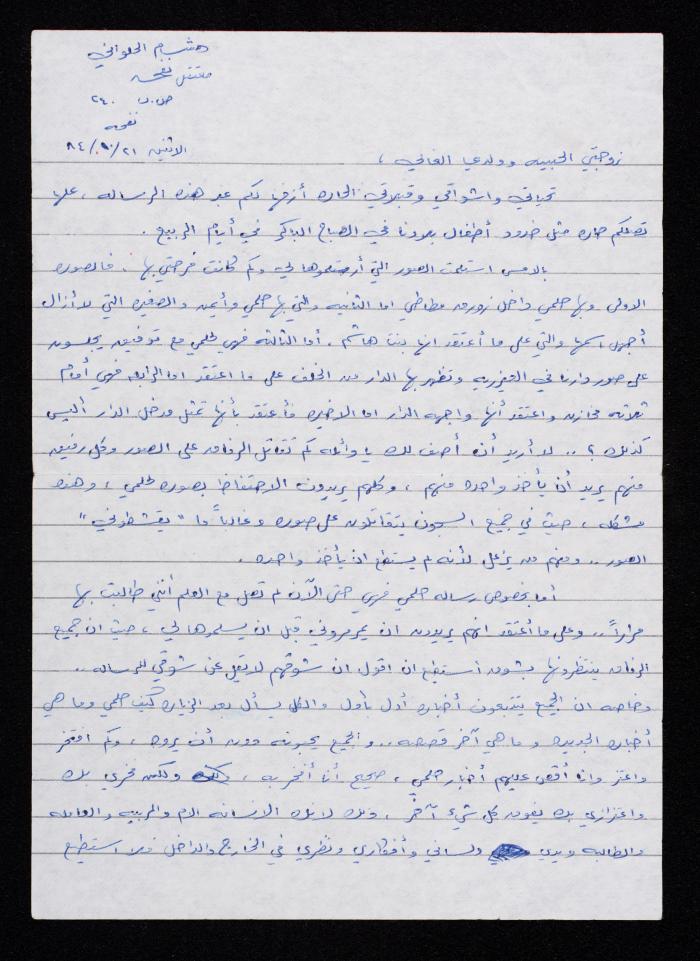 هشام الحلواني
معتقل نفحه
ص.ب ٢٤٠
نفحه
الاثنين ٢١/٠/٨٤
زوجتي الحبيبه وولدي الغالي ،
تحياتي واشواقي وقبلاتي الحاره أزفها لكم عبر هذه الرساله ، علها
تصلكم حاره مثل خدود أطفال بلادنا في الصباح الباكر في أيام الربيع .
بالامس استلمت الصور التي أرسلتموها لي وكم كانت فرحتي بها ، فالصوره
الاولى وبها حلمي داخل زورق مطاطي اما الثانيه والتي بها حلمي وأيمن والصغيره التي لا أزال
أجهل اسمها والتي على ما أعتقد انها بنت هاشم . أما الثالثه فهي لحلمي مع توفيق يجلسون
على صور دارنا في العيزريه وتظهر بها الدار من الخلف على ما اعتقد اما الرابعه فهي أمام
ثلاثه مخازن واعتقد أنها واجهه الدار اما الاخيره فأعتقد بأنها تمثل مدخل الدار أليس
كذلك ؟ .. لا أريد أن أصف لك يا وائله كم تقاتل الرفاق على الصور وكل رفيق
منهم يريد أن يأخذ واحده منهم ، وكلهم يريدون الاحتفاظ بصوره لحلمي ، وهذه
مشكله ، حيث في جميع السجون يتقاتلون على صوره وغالباً ما "يقشطوني"
الصور .. ومنهم من يزعل لأنه لم يستطع ان يأخذ واحده .
أما بخصوص رساله حلمي فهي حتى الآن لم تصل مع العلم أنني طالبت بها
مراراً .. وعلى ما أعتقد انهم يريدون ان يمرمروني قبل ان يسلموها لي ، حيث ان جميع
الرفاق ينتظرونها بشوق أستطيع ان اقول ان شوقهم لا يقل عن شوقي للرساله ..
وخاصه ان الجميع يتتبعون أخباره أول بأول والكل يسأل بعد الزياره كيف حلمي وما هي
أخباره الجديده وما هي آخر قصصه .. والجميع يحبونه دون أن يروه ، وكم افتخر
واعتز وانا أقص عليهم أخبار حلمي ، صحيح أنا أفخر به ، ولكن فخري بك
واعتزازي بك يفوق كل شيء آخر ، وذلك لانك الانسانه الام والمربيه والعامله
والطالبه ويدي ولساني وأفكاري ونظري في الخارج والداخل فلا استطيع